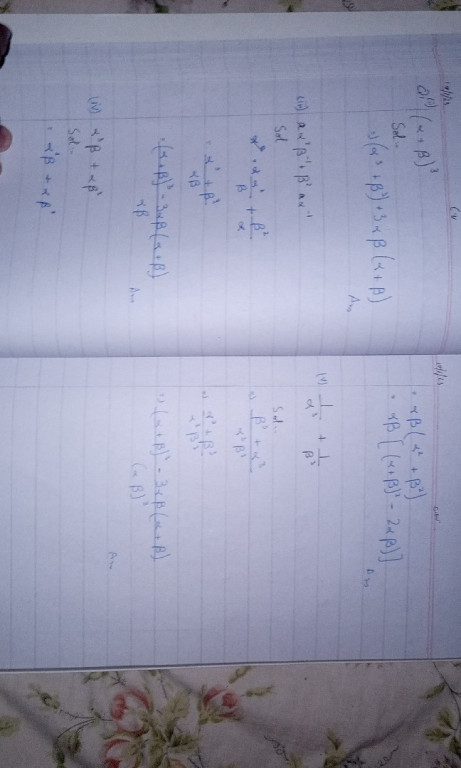 Q1(i) (α + β)³
Sol:-
= (α³ + β³) + 3αβ (α + β)
Ans
(iii) α²β⁻¹ + β²α⁻¹
Sol
= α²/β + β²/α
= α³ + β³/αβ
= (α+β)³ - 3αβ(α+β)/αβ
Ans
(iv) α³β + αβ³
Sol:-
= α³β + αβ³
= αβ(α² + β²)
= αβ[(α+β)² - 2αβ)]
Ans
(v) 1/α³ + 1/β³
Sol:-
= β³ + α³/α³β³
= α³ + β³/α³β³
= (α+β)³ - 3αβ(α+β)/(αβ)³
Ans